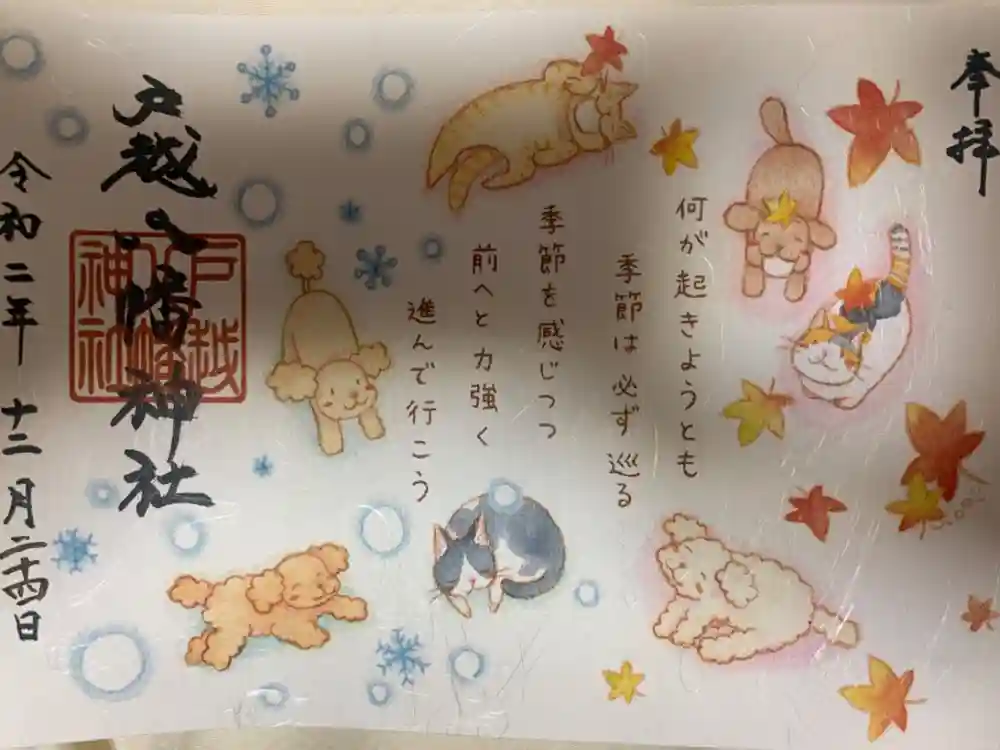 奉拝
何が起きようとも
季節は必ず巡る
季節を感じつつ
前へと力強く
進んで行こう
戸越八幡神社
戸越八幡神社
令和二年十二月二十四日